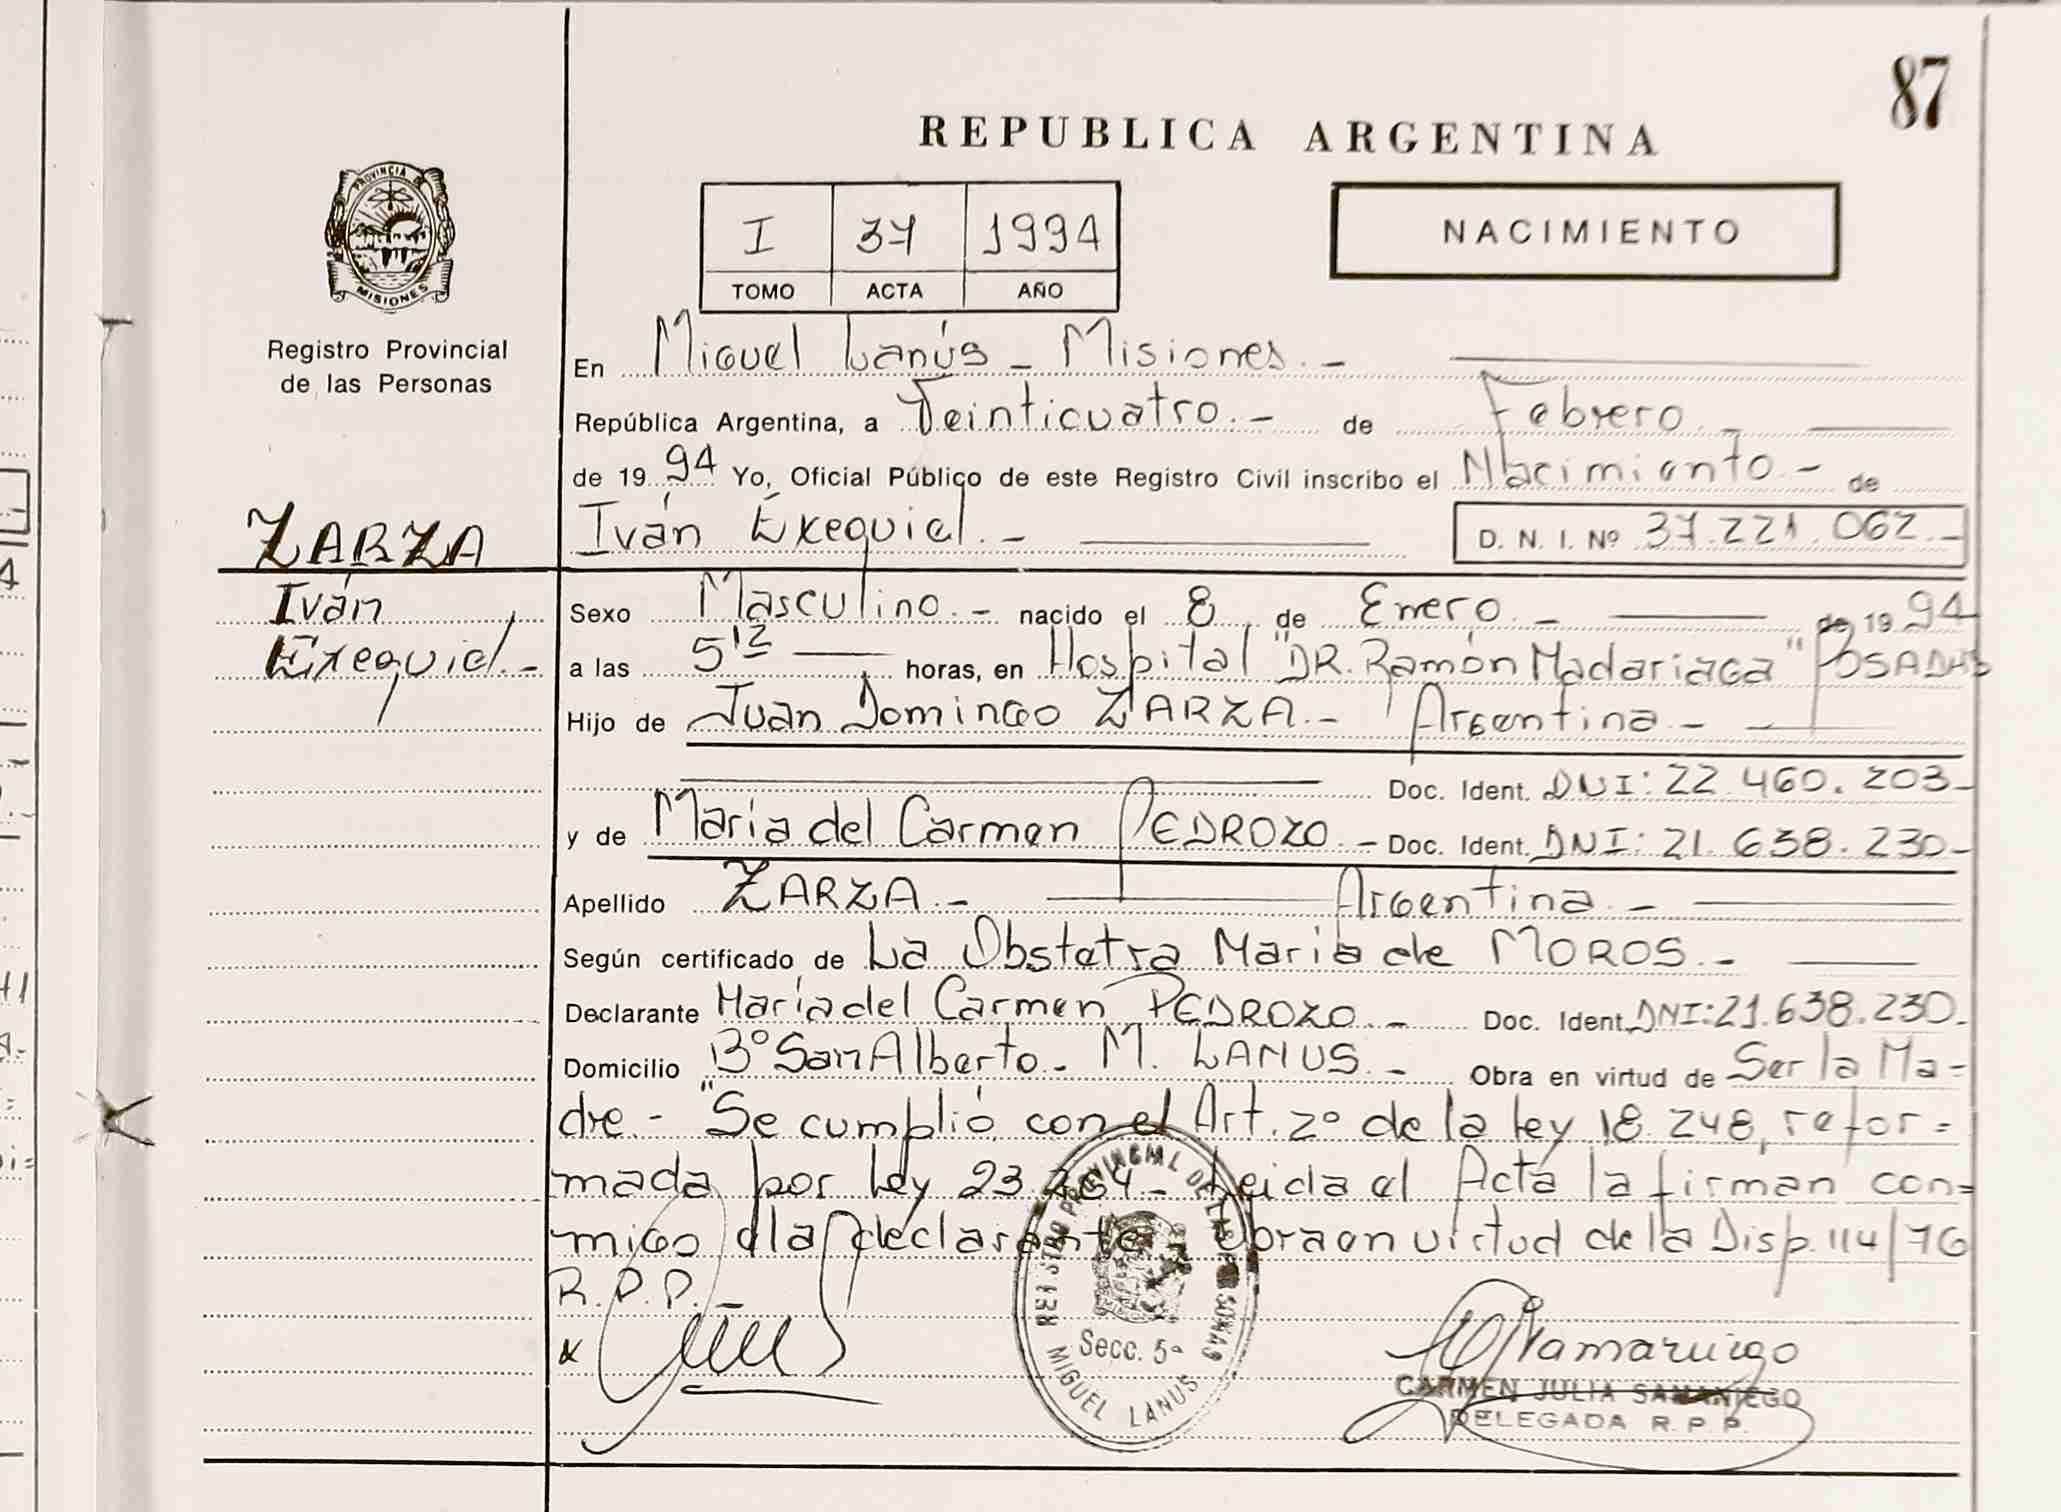 87
REPUBLICA ARGENTINA
PROVINCIA DE
MISIONES
Registro Provincial
de las Personas
I 37 1994
TOMO ACTA AÑO
NACIMIENTO
En Miguel Lanús - Misiones.-
República Argentina, a Veinticuatro.- de Febrero.-
de 1994 Yo, Oficial Público de este Registro Civil inscribo el Nacimiento.- de
Iván Exequiel.- D. N. I. Nº 37.221.062.-
ZARZA
Iván
Exequiel.-
Sexo Masculino.- nacido el 8 de Enero.- de 1994
a las 5 12 horas, en Hospital "DR. Ramón Madariaga" POSADAS
Hijo de Juan Domingo ZARZA.- Argentina.-
Doc. Ident. DNI: 22.460.203-
y de María del Carmen PEDROZO.- Doc. Ident. DNI: 21.638.230-
Apellido ZARZA.- Argentina.-
Según certificado de La Obstetra María de MOROS.-
Declarante María del Carmen PEDROZO.- Doc. Ident. DNI: 21.638.230.-
Domicilio Bº San Alberto.- M. LANUS.- Obra en virtud de Ser la Ma=
dre.- "Se cumplió con el Art. 2º de la ley 18.248, refor=
mada por ley 23.264- Leida el Acta la firman con=
migo la declarante. Obra en virtud de la Disp. 114/76
R.P.P.-
x
REGISTRO PROVINCIAL DE LAS PERSONAS
Secc. 5ª
MIGUEL LANUS
CARMEN JULIA SAMANIEGO
DELEGADA R. P. P.